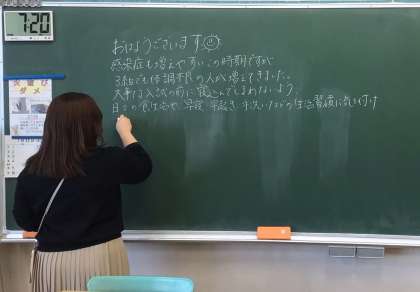 7:20
火曜び
ダメ
おはようございます
感染症も増えやすいこの時期ですが
3年でも体調不良の人が増えてきました。
大事な入試の前に寝込んでしまわないよう、
日々の食は 早寝 早起き 手洗いなどの生活習慣に気を付け